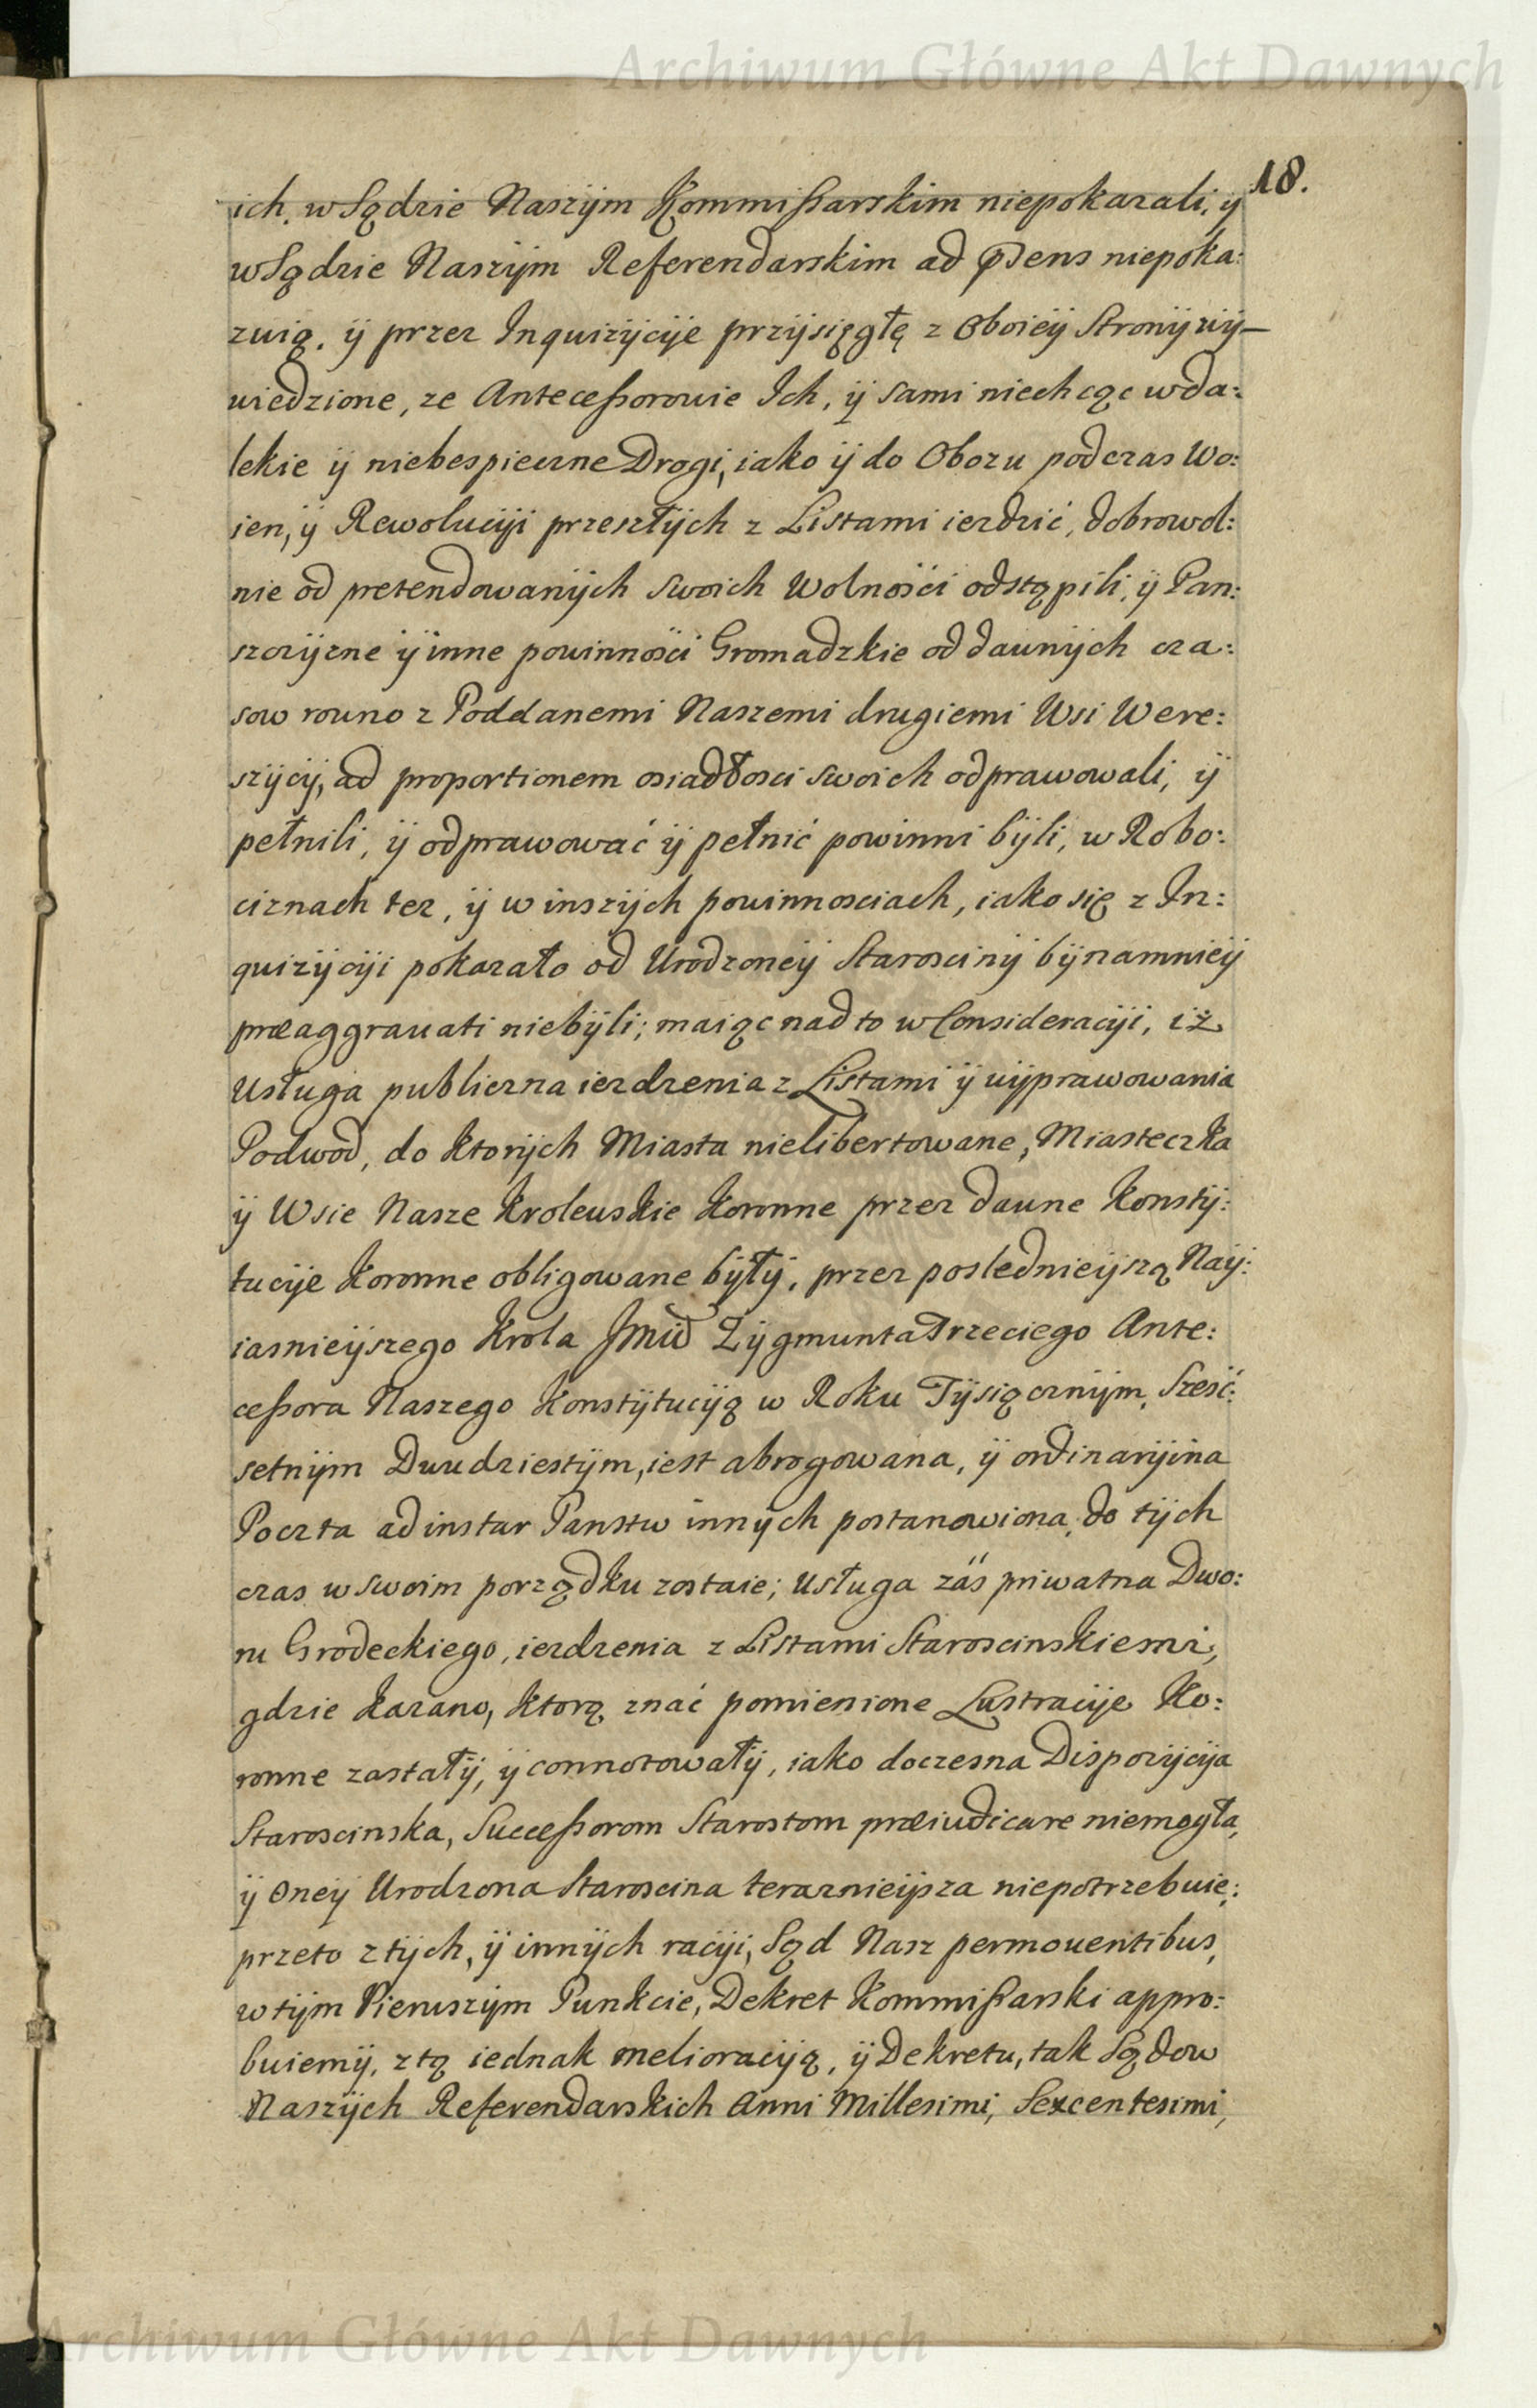 Archiwum Główne Akt Dawnych
18.
ich, w Sądzie Naszÿm Kommißarskim niepokazali, ÿ
w Sądzie Naszÿm Referendarskim ad pñs niepoka:
zuią, ÿ przez Inquizÿcÿe przÿsięgłę z Oboieÿ Stronÿ wÿ—
wiedzione, ze Anteceßorowie Ich, ÿ sami niechcąc w da:
lekie ÿ niebespieczne Drogi, iako ÿ do Obozu podczas Wo:
ien, ÿ Rewolucÿi przeszłÿch z Listami iezdzić, dobrowol:
nie od pretendowanÿch swoich Wolnośći odstąpili, ÿ Pan:
szczÿzne ÿ inne powinnośći Gromadzkie od dawnÿch cza:
sow rowno z Poddanemi Naszemi drugiemi Wsi Were:
szÿcÿ, ad proportionem osiadłosci swoich odprawowali, ÿ
pełnili, ÿ odprawować ÿ pełnić powinni bÿli, w Robo:
ciznach tez, ÿ w inszÿch powinnosciach, iako się z In:
quizÿcÿi pokazało od Urodzoneÿ Staroscinÿ bÿnamnieÿ
præaggravati niebÿli; maiąc nad to w Consideracÿi, iż
Usługa publiczna iezdzenia z Listami ÿ wÿprawowania
Podwod, do ktorÿch Miasta nielibertowane, Miasteczka
ÿ Wsie Nasze Krolewskie Koronne przez dawne Konstÿ:
tucÿe Koronne obligowane bÿłÿ, przez poslednieÿszą Naÿ:
iasnieÿszego Krola Jmći Zÿgmunta Trzeciego Ante:
ceßora Naszego Konstÿtucÿą w Roku Tÿsiącznÿm, Sześć:
setnÿm Dwudziestÿm, iest abrogowana, ÿ ordinarÿina
Poczta ad instar Panstw innÿch postanowiona, do tÿch
czas w swoim porządku zostaie; Usługa záś priwatna Dwo:
ru Grodeckiego, iezdzenia z Listami Staroscinskiemi,
gdzie kazano, ktorą znać pomienione Lustracÿe Ko:
ronne zastałÿ, ÿ connotowałÿ, iako doczesna Disposÿcÿa
Staroscinska, Succeßorom Starostom præiudicare niemogła,
ÿ Oneÿ Urodzona Staroscina teraznieÿsza niepotrzebuie;
przeto z tÿch, ÿ innÿch racÿi, Sąd Nasz permoventibus,
w tÿm Pierwszÿm Punkcie, Dekret Kommißarski appro:
buiemÿ, z tą iednak melioracÿą, ÿ Dekretu, tak Sądow
Naszÿch Referendarskich Anni Millesimi, Sexcentesimi,
Archiwum Główne Akt Dawnych